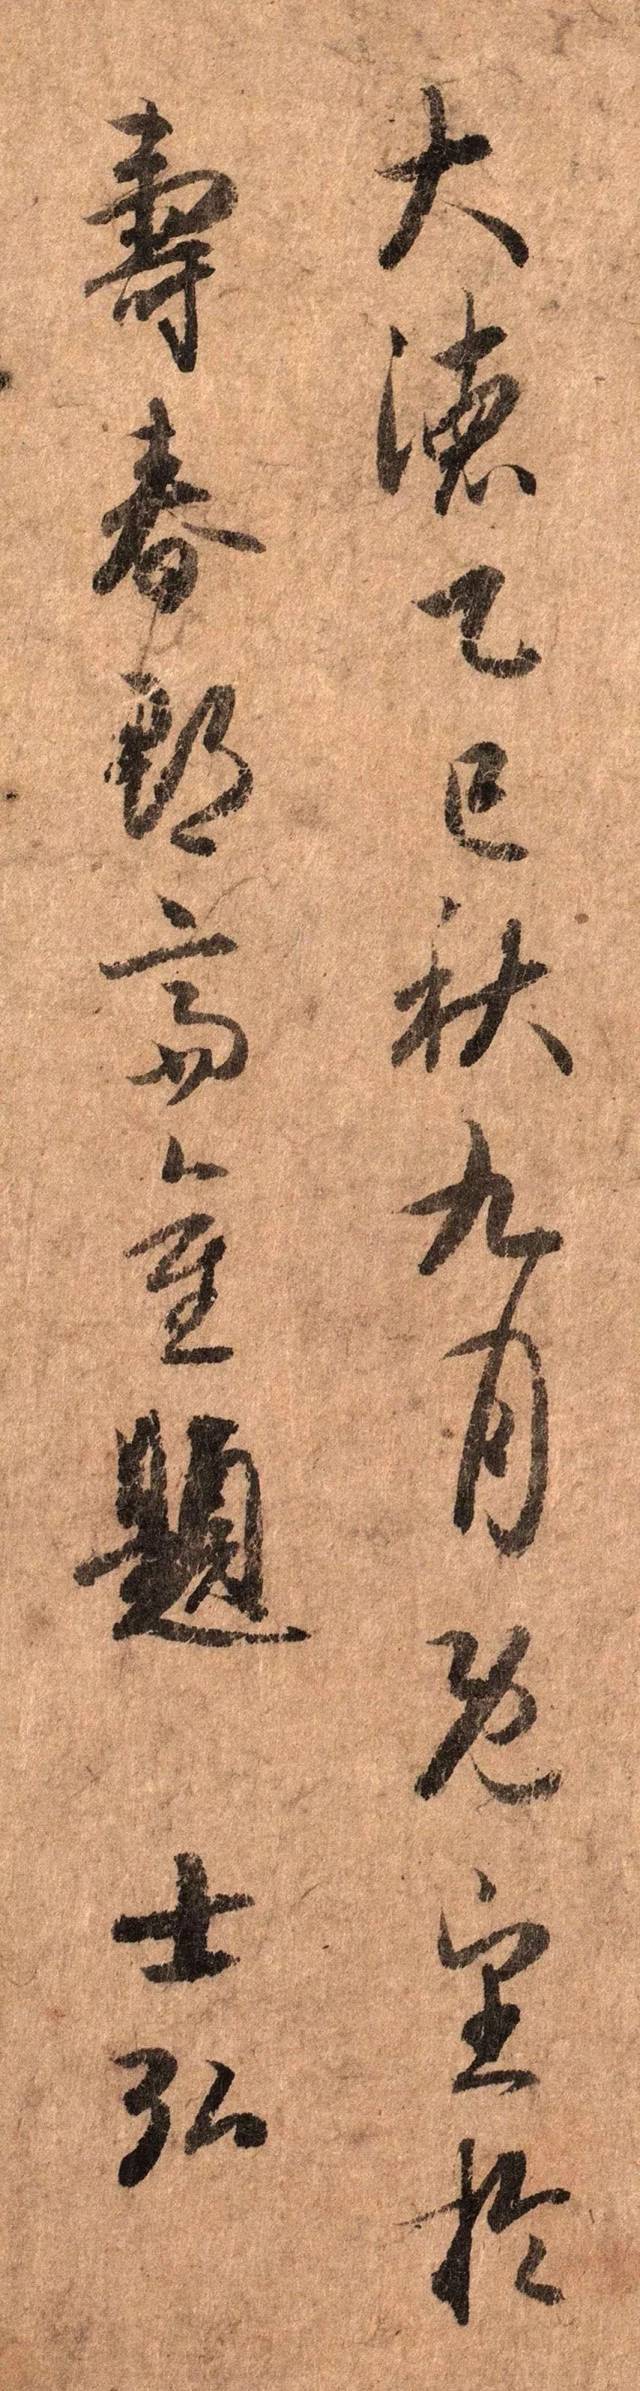 大德乙巳秋九月既望於
壽春郡齋重題　士弘